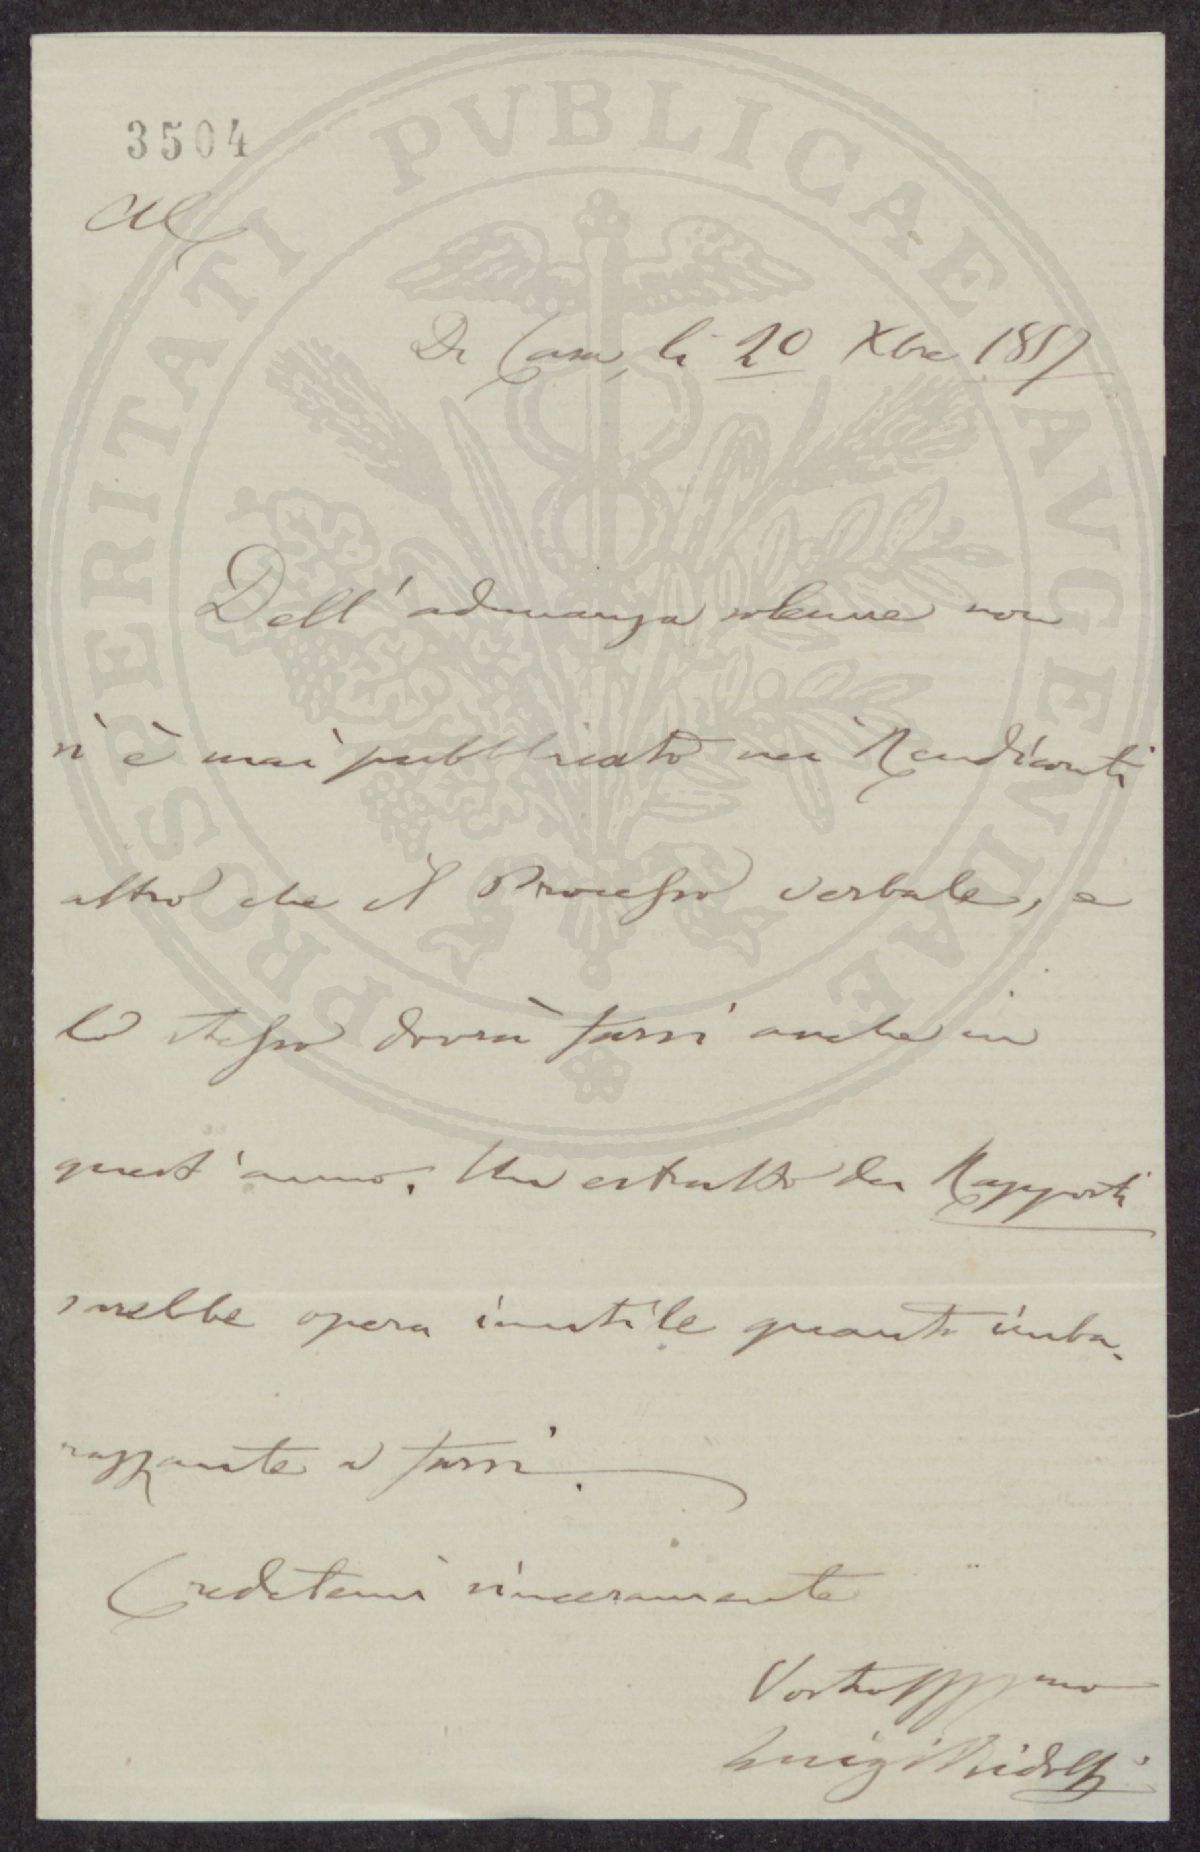 PROSPERITATI PVBLICAE AVGENDAE
3504
Al
Di Casa, li 20 Xbre 1857
Dell'adunanza solenne non
si è mai pubblicato nei Rendiconti
altro che il Processo verbale, e
lo stesso dovrà farsi anche in
quest'anno. Un estratto dei Rapporti
sarebbe opera inutile quanto imba-
razzante a farsi.
Credetemi sinceramente
Luigi Ridolfi